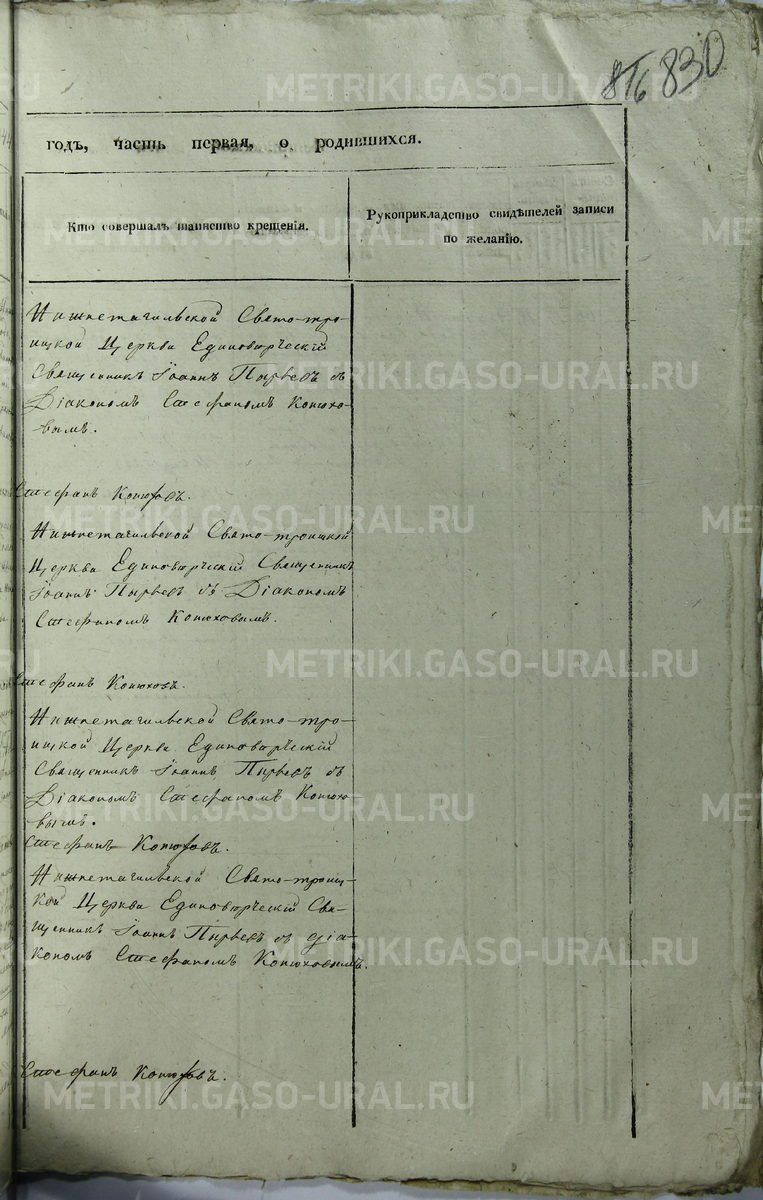 876 830
METRIKI.GASO-URAL.RU
годъ, часть первая, о родившихся.
Кто совершалъ таинство крещенія.
Рукоприкладство свидѣтелей записи
по желанію.
Нижнетагильской Свято-тро-
ицкой Церкви Единовѣрческій
Священникъ Іоаннъ Пырьевъ съ
Діакономъ Стефаномъ Конюхо-
вымъ.
Стефанъ Конюховъ.
Нижнетагильской Свято-троицкой
Церкви Единовѣрческій Священникъ
Іоаннъ Пырьевъ съ Діакономъ
Стефаномъ Конюховымъ.
Стефанъ Конюховъ.
Нижнетагильской Свято-тро-
ицкой Церкви Единовѣрческій
Священникъ Іоаннъ Пырьевъ съ
Діакономъ Стефаномъ Конюхо-
вымъ.
Стефанъ Конюховъ.
Нижнетагильской Свято-троиц-
кой Церкви Единовѣрческій Свя-
щенникъ Іоаннъ Пырьевъ съ діа-
кономъ Стефаномъ Конюховымъ.
Стефанъ Конюховъ.